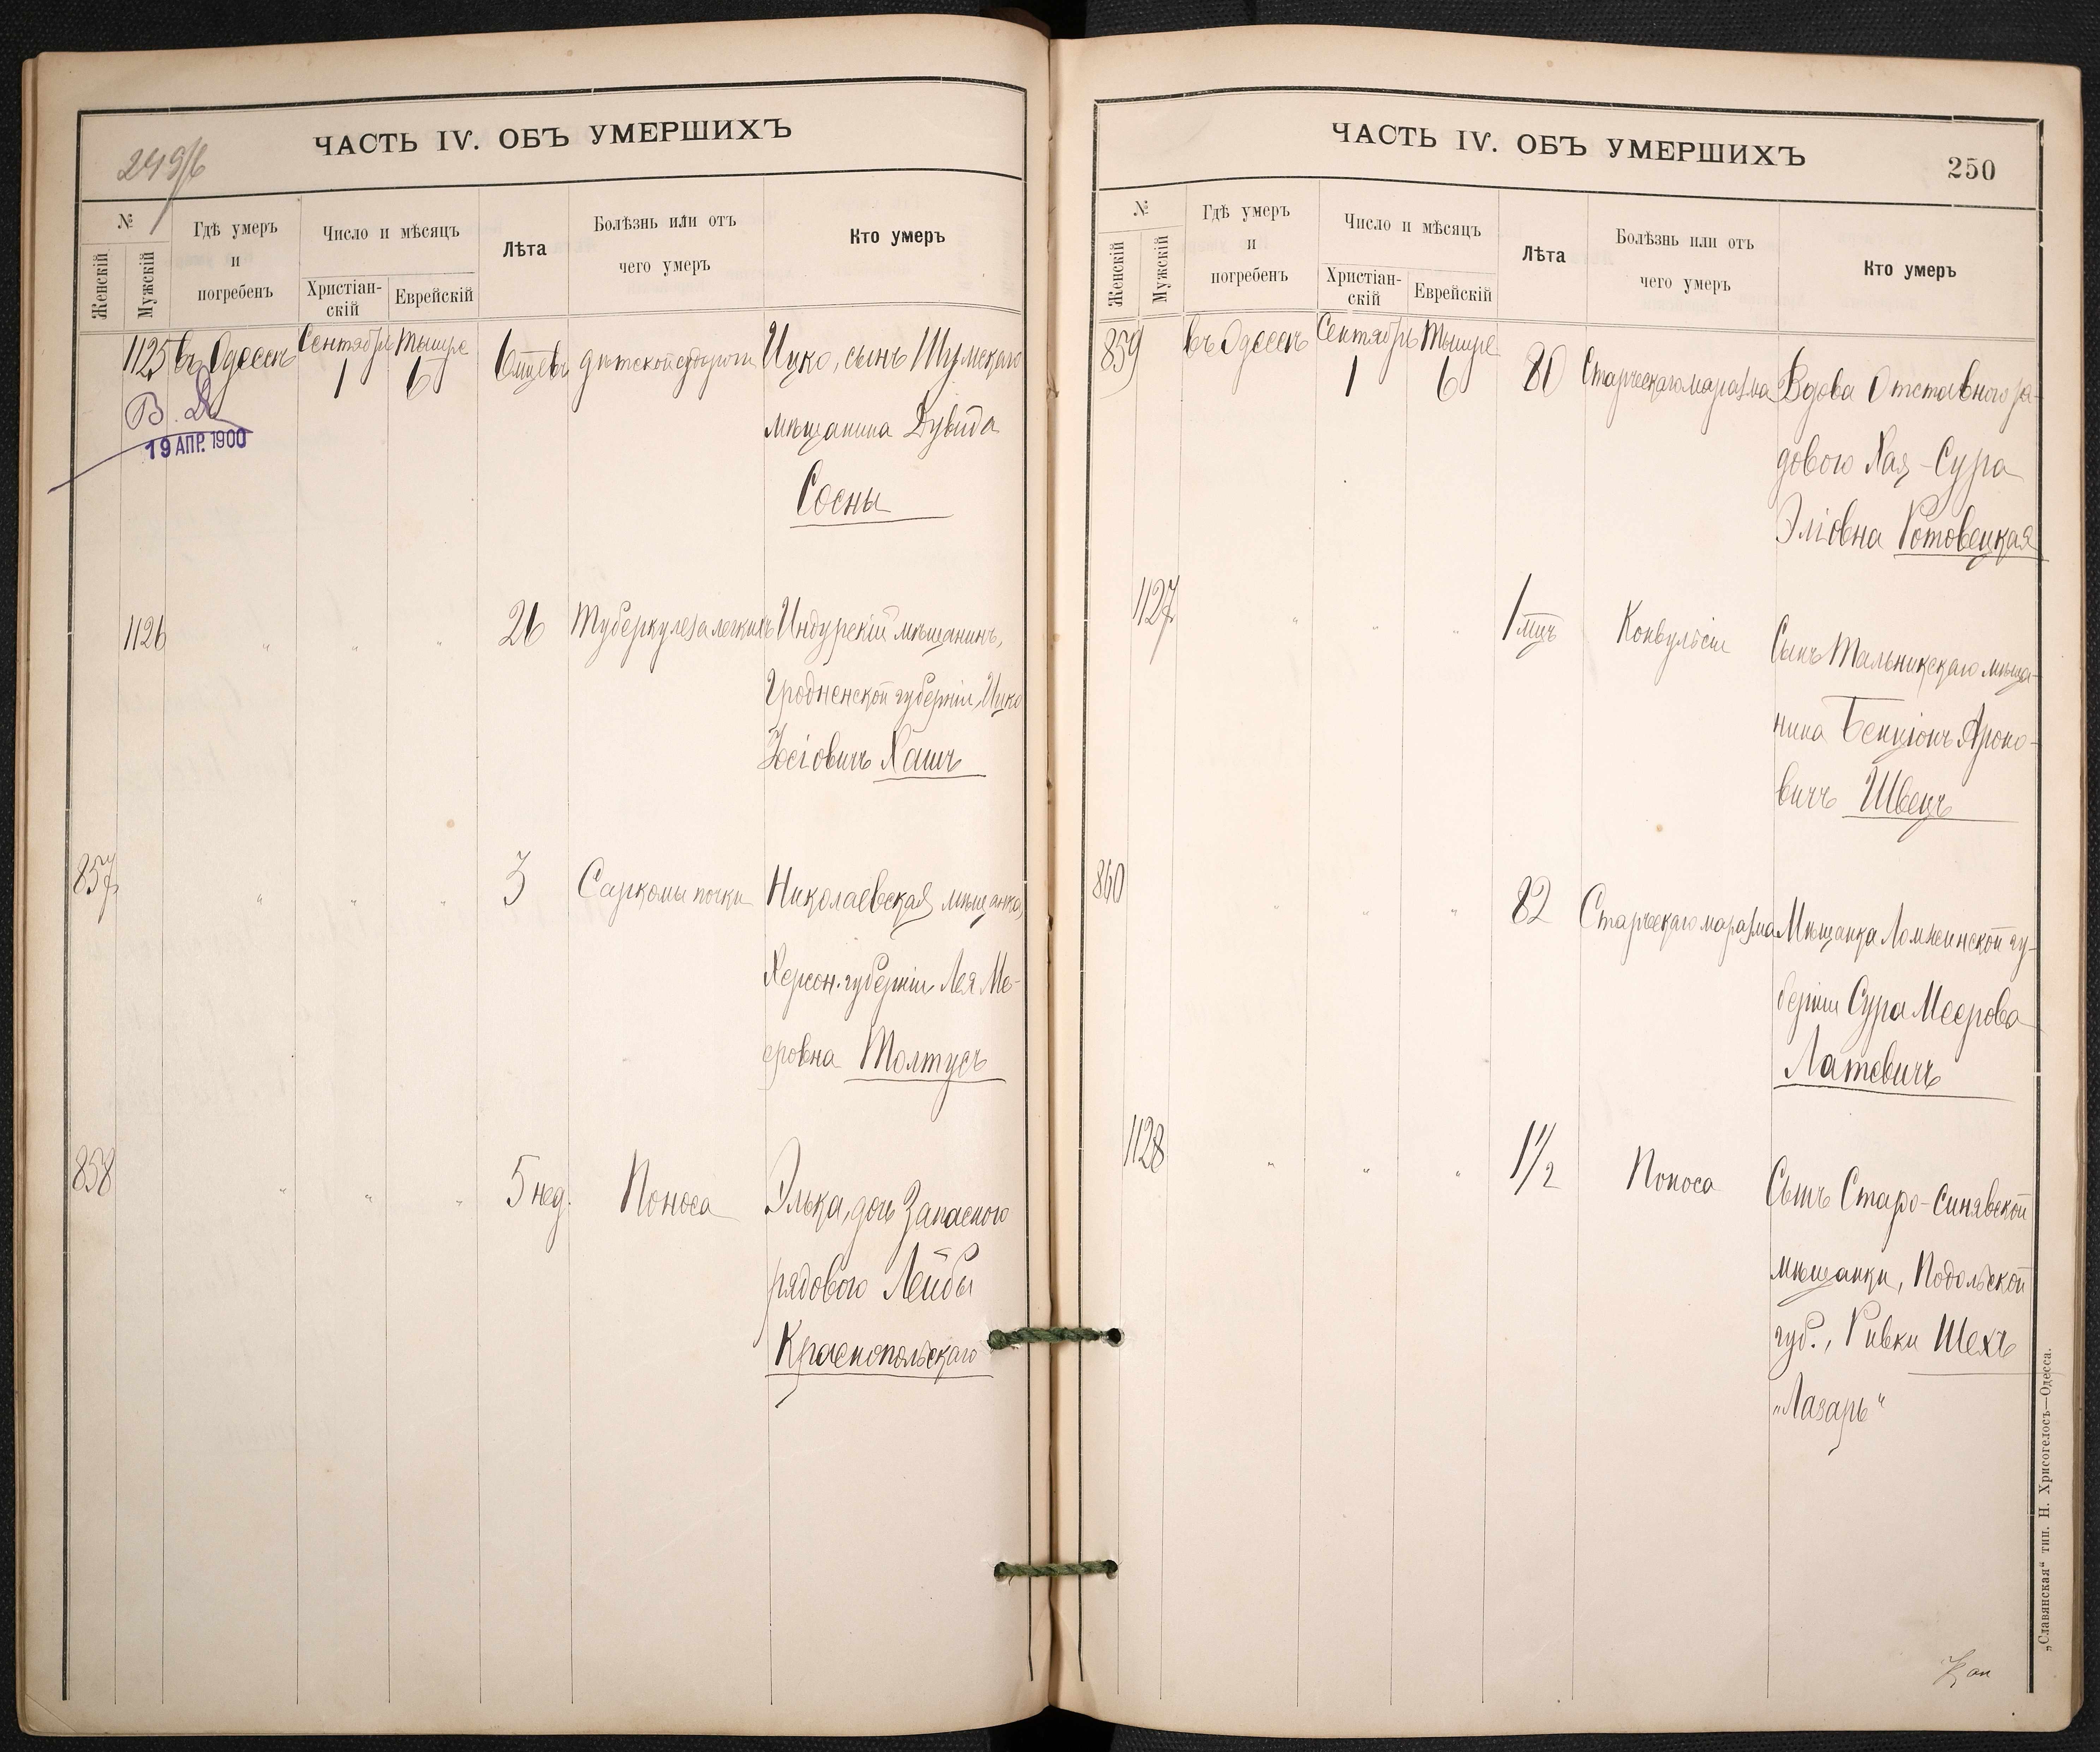 249/б
ЧАСТЬ IV. ОБЪ УМЕРШИХЪ
№
Женскій
Мужскій
Гдѣ умеръ
и
погребенъ
Число и мѣсяцъ
Христіан-
скій
Еврейскій
Лѣта
Болѣзнь или отъ
чего умеръ
Кто умеръ
1125 въ Одессѣ Сентябрь 1 Тышре 6 6 мцевъ дѣтской судороги Ицко, сынъ Шумскаго
мѣщанина Дувида
Сосны
19 АПР. 1900
1126 " " " 26 Туберкулеза легкихъ Индурскій мѣщанинъ,
Гродненской губерніи, Ицко
Іосіовичъ Хашъ
857 " " " 3 Саркомы почки Николаевская мѣщанка,
Херсон. губерніи Лея Ме-
еровна Толтусъ
858 " " " 5 нед. Поноса Элька, дочь Запасного
рядового Лейбы
Краснопольскаго
ЧАСТЬ IV. ОБЪ УМЕРШИХЪ
250
№
Женскій
Мужскій
Гдѣ умеръ
и
погребенъ
Число и мѣсяцъ
Христіан-
скій
Еврейскій
Лѣта
Болѣзнь или отъ
чего умеръ
Кто умеръ
859 въ Одессѣ Сентябрь 1 Тышре 6 80 Старческаго маразма Вдова Отставного ря-
дового Хая-Сура
Эліовна Ротовецкая
1127 " " " 1 мцъ Конвульсіи Сынъ Тальникскаго мѣща-
нина Бенціонъ Ароно-
вичъ Швецъ
860 " " " 82 Старческаго маразма Мѣщанка Ломжинской гу-
берніи Сура Меерова
Латевичъ
1128 " " " 1 1/2 Поноса Сынъ Старо-Синявской
мѣщанки, Подольской
губ., Ривки Шехъ
„Лазарь“
„Славянская“ тип. Н. Хрисогелосъ—Одесса.